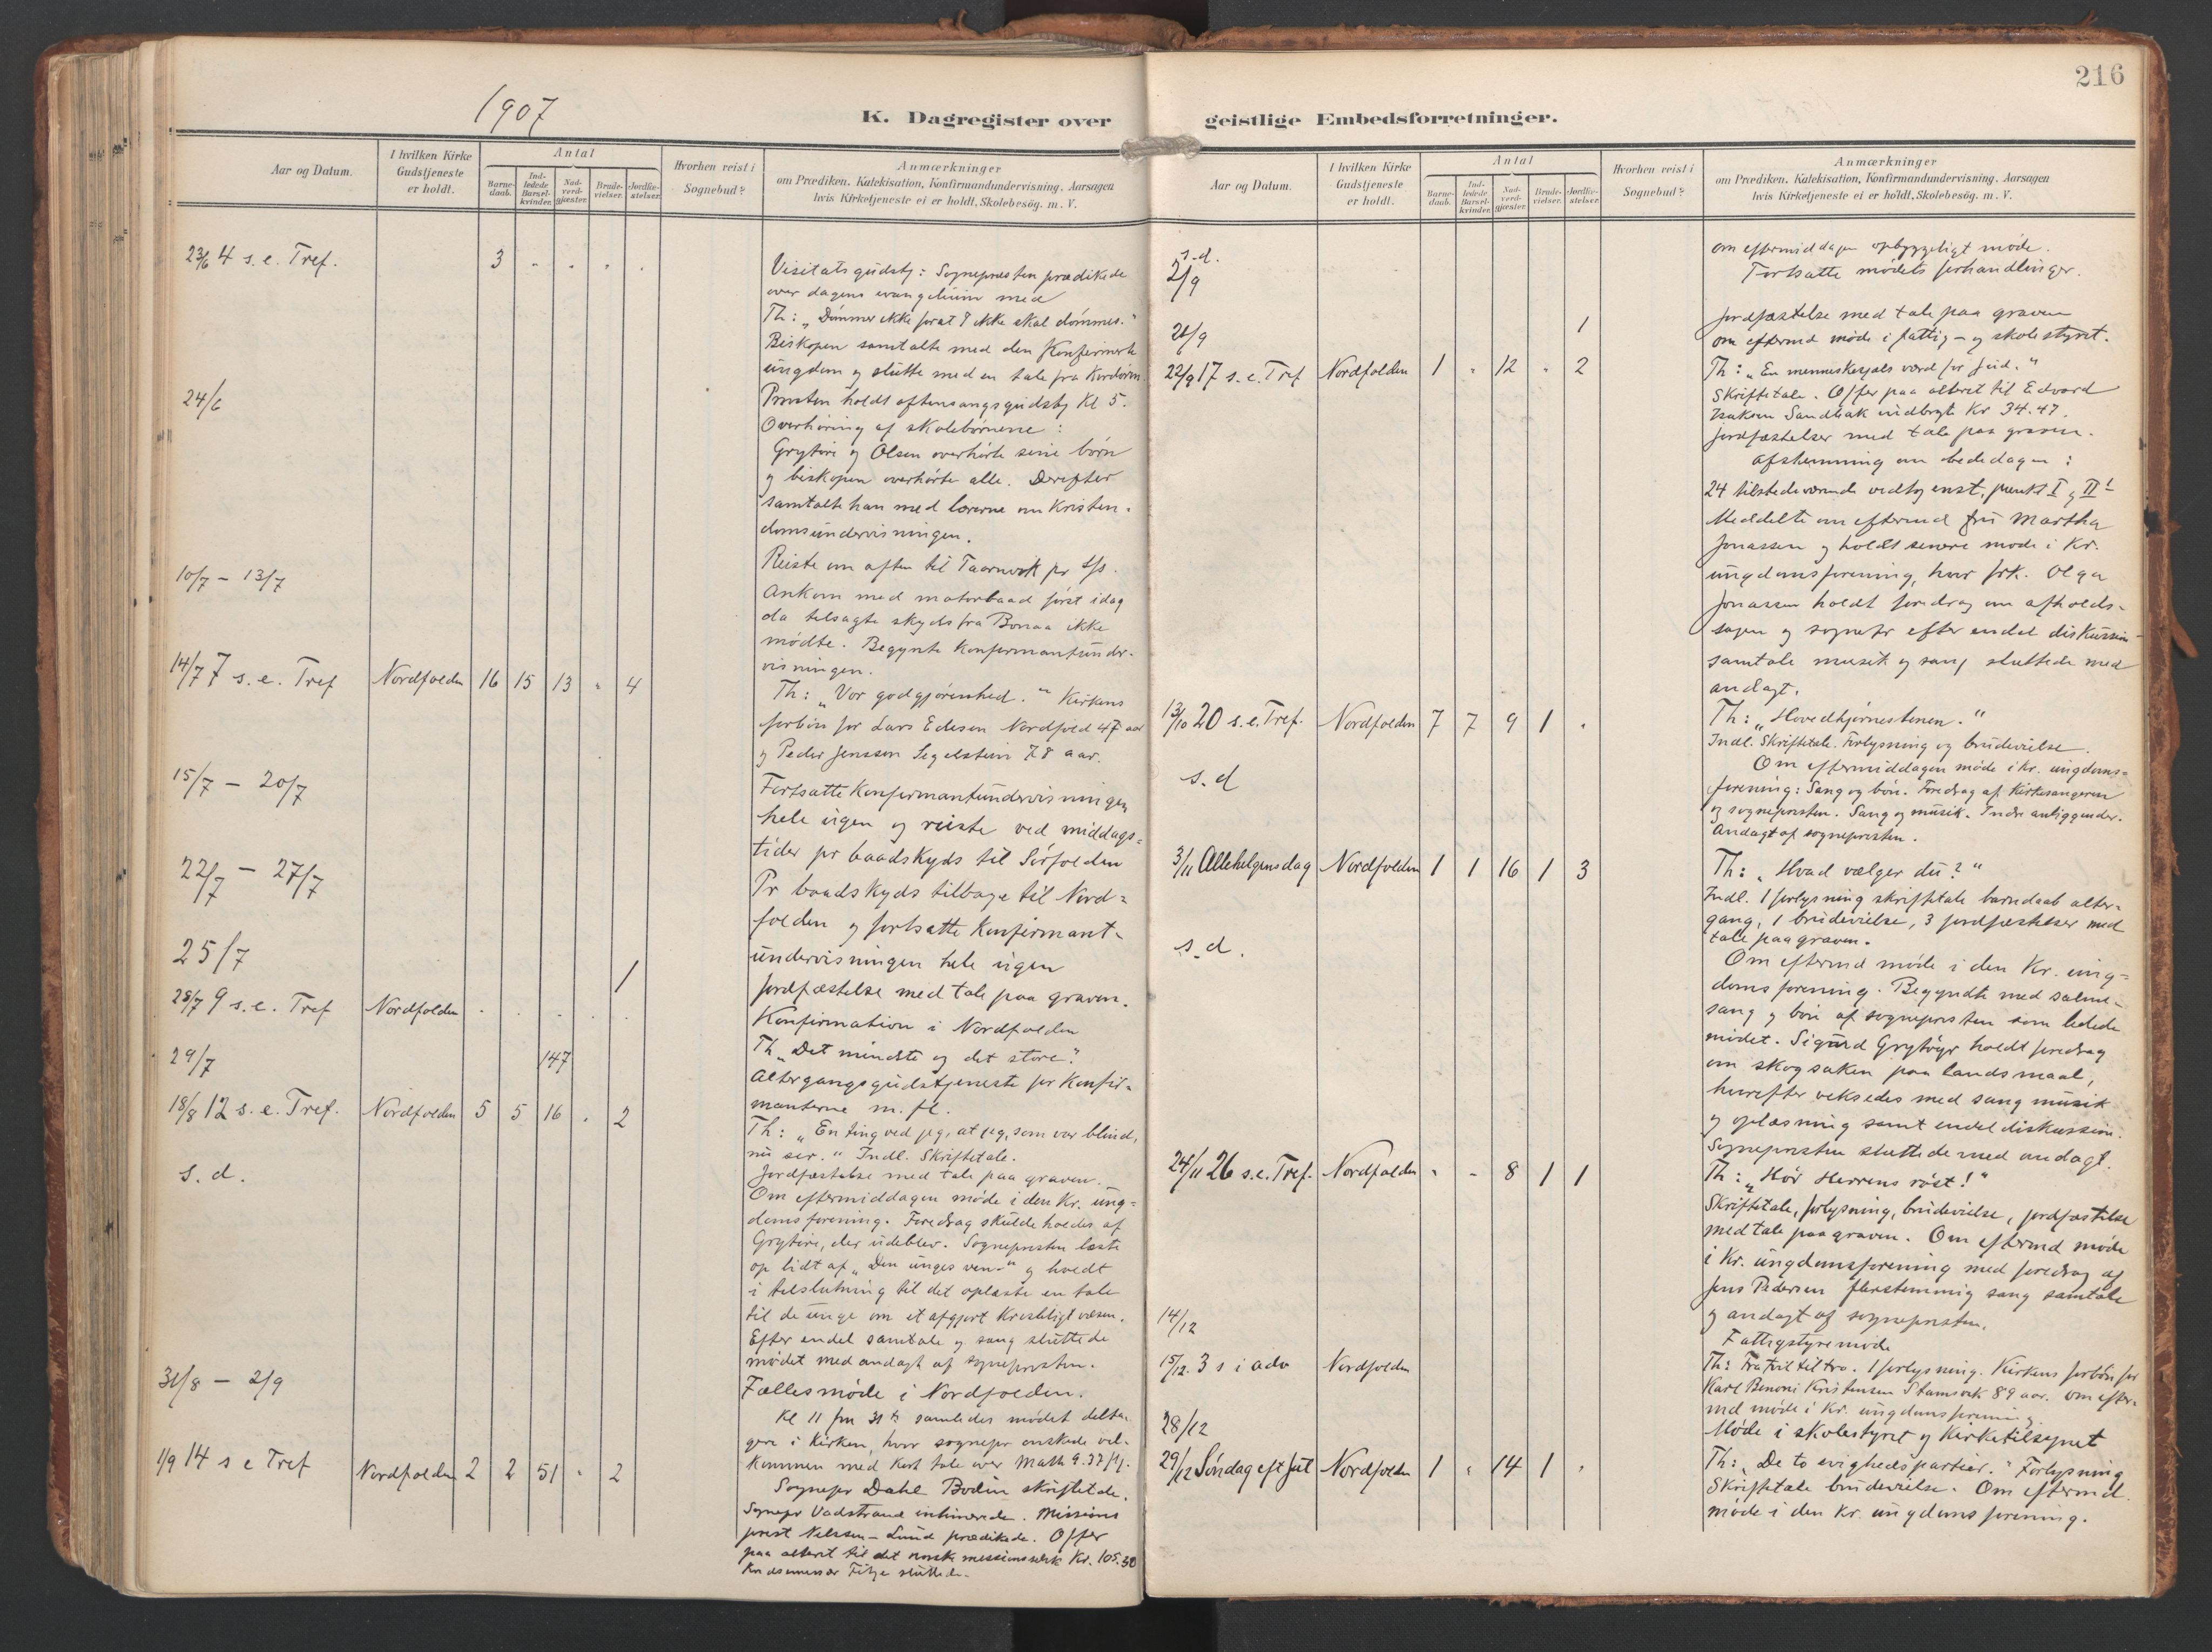 1907
K. Dagregister over
Aar og Datum.
I hvilken Kirke Gudstjeneste er holdt.
Antal
Barne-daab.
Ind-ledede Barsel-kvinder.
Nad-verd-gjæster.
Brude-vielser.
Jordfæ-stelser.
Hvorhen reist i Sognebud?
Anmærkninger
om Prædiken, Katekisation, Konfirmandundervisning. Aarsagen
hvis Kirketjeneste ei er holdt, Skolebesög. m. V.
23/6 4 s. e. Tref. 3 . . . .
Visitatsgudstj: Sognepresten prædikede
over dagens evangelium med
Th: „Dømmer ikke forat I ikke skal dømmes."
Biskopen samtalte med den Konfirmerte
ungdom og slutte med en tale fra Kordøren
Prosten holdt aftensangsgudstj Kl 5.
24/6
Overhøring af skolebørnene:
og Olsen overhørte sine børn
og biskopen overhørte alle. Derefter
samtalte han med lærerne om Kristen-
domsundervisningen.
Reiste om aften til Taarnvik pr s/s.
10/7 - 13/7
Ankom med motorbaad først idag
da tilsagte skyds fra Bonaa ikke
mødte. Begynte Konfirmantunder-
visningen.
14/7 7 s. e. Tref Nordfolden 16 15 13 " 4
Th: „Vor godgjørenhed." Kirkens
forbøn for Lars Edesen Nordfjold 47 aar
og Peder Jenssen Segelstein 78 aar.
15/7 - 20/7
Fortsatte Konfirmantundervisningen
hele ugen og reiste ved middags-
tider pr baadskyds til Sørfolden
22/7 - 27/7
Pr baadskyds tilbage til Nord-
folden og fortsatte Konfirmant-
undervisningen hele ugen
25/7 1
Jordfæstelse med tale paa graven.
28/7 9 s. e. Tref Nordfolden . . . . .
Konfirmation i Nordfolden
Th „Det mindste og det store".
29/7 147
Altergangsgudstjeneste for Konfir-
manterne m. fl.
18/8 12 s. e. Tref. Nordfolden 5 5 16 . 2
Th: „En ting ved jeg, at jeg, som var blind,
nu ser." Indl. Skriftetale.
Jordfæstelse med tale paa graven.
s. d.
Om eftermiddagen møde i den Kr. ung-
domsforening. Foredrag skulde holdes af
der udeblev. Sognepresten læste
op lidt af „Den unges ven" og holdt
i tilslutning til det oplæste en tale
til de unge om et afgjort Kristeligt væsen.
Efter endel samtale og sang sluttede
mødet med andagt af sognepresten.
31/8 - 2/9
Fællesmøde i Nordfolden.
Kl 11 fm 31te samledes mødet delta-
gere i Kirken, hvor sognepr ønskede vel-
kommen med kort tale over Math 9. 37
1/9 14 s e Tref Nordfolden 2 2 51 " 2
Sognepr Dahl Bodin skriftetale.
Sognepr Vadstrand intimerede. Missions
prest Nilssen-Lund prædikede. Offer
paa alteret til det norske missionsselsk Kr. 105.30
sluttede.
216
geistlige Embedsforretninger.
Aar og Datum.
I hvilken Kirke Gudstjeneste er holdt.
Antal
Barne-daab.
Ind-ledede Barsel-kvinder.
Nad-verd-gjæster.
Brude-vielser.
Jordfæ-stelser.
Hvorhen reist i Sognebud?
Anmærkninger
om Prædiken, Katekisation, Konfirmandundervisning. Aarsagen
hvis Kirketjeneste ei er holdt, Skolebesög. m. V.
s. d.
om eftermiddagen opbyggeligt møde.
2/9
Fortsatte mødets forhandlinger.
1
Jordfæstelse med tale paa graven
21/9
om eftermd møde i fattig- og skolestyret.
22/9 17 s. e. Tref Nordfolden 1 " 12 " 2
Th: „En menneskesjæls værd for Gud."
Skriftetale. Offer paa alteret til Edvard
Isaksen Sandbak indbragte Kr 34.47.
Jordfæstelser med tale paa graven.
Afstemning om bededagen:
24 tilstedeværende vedtog enst. punkt I og II!
Meddelte om eftermd fru Martha
Jonassen og holdt senere møde i Kr.
ungdomsforening, hvor frk. Olga
Jonassen holdt foredrag om afholds-
sagen og sognepr efter endel diskussion
samtale musik og sang sluttede med
andagt.
13/10 20 s. e. Tref. Nordfolden 7 7 9 1 .
Th: „Hovedhjørnestenen."
Indl. Skriftetale. Forlysning og brudevielse.
s. d
Om eftermiddagen møde i Kr. ungdoms-
forening: Sang og bøn. Foredrag af Kirkesangeren
og sognepresten. Sang og musik. Indre anliggender.
Andagt af sognepresten.
3/11 Allehelgensdag Nordfolden 1 1 16 1 3
Th: „Hvad vælger du?"
Indl. 1 forlysning skriftetale barnedaab alter-
gang, 1 brudevielse, 3 jordfæstelser med
tale paa graven.
s. d.
Om eftermd møde i den Kr. ung-
domsforening. Begyndte med salme-
sang og bøn af sognepresten som ledede
mødet. Sigurd Grytøyr holdt foredrag
om skogsaken paa landsmaal,
hvorefter veksedes med sang musik
og oplæsning samt endel diskussion.
Sognepresten sluttede med andagt.
24/11 26 s. e. Tref. Nordfolden " - 8 1 1
Th: „Hør Herrens røst!"
Skriftetale, forlysning, brudevielse, jordfæstelse
med tale paa graven. Om eftermd møde
i Kr. ungdomsforening med foredrag af
Jens Pedersen flerstemmig sang samtale
og andagt af sognepresten.
14/12
Fattigstyremøde
15/12. 3 s i adv Nordfolden
Th: Fra tvil til tro. 1 forlysning. Kirkens forbøn for
Karl Benoni Kristensen Stamsvik 89 aar. Om efter-
md møde i Kr. ungdomsforening.
28/12
Møde i skolestyret og Kirketilsynet
29/12 Søndag eft jul Nordfolden 1 " 14 1 .
Th: „De to evighedspartier." Forlysning
Skriftetale brudevielse. Om eftermd.
møde i den Kr. ungdomsforening.